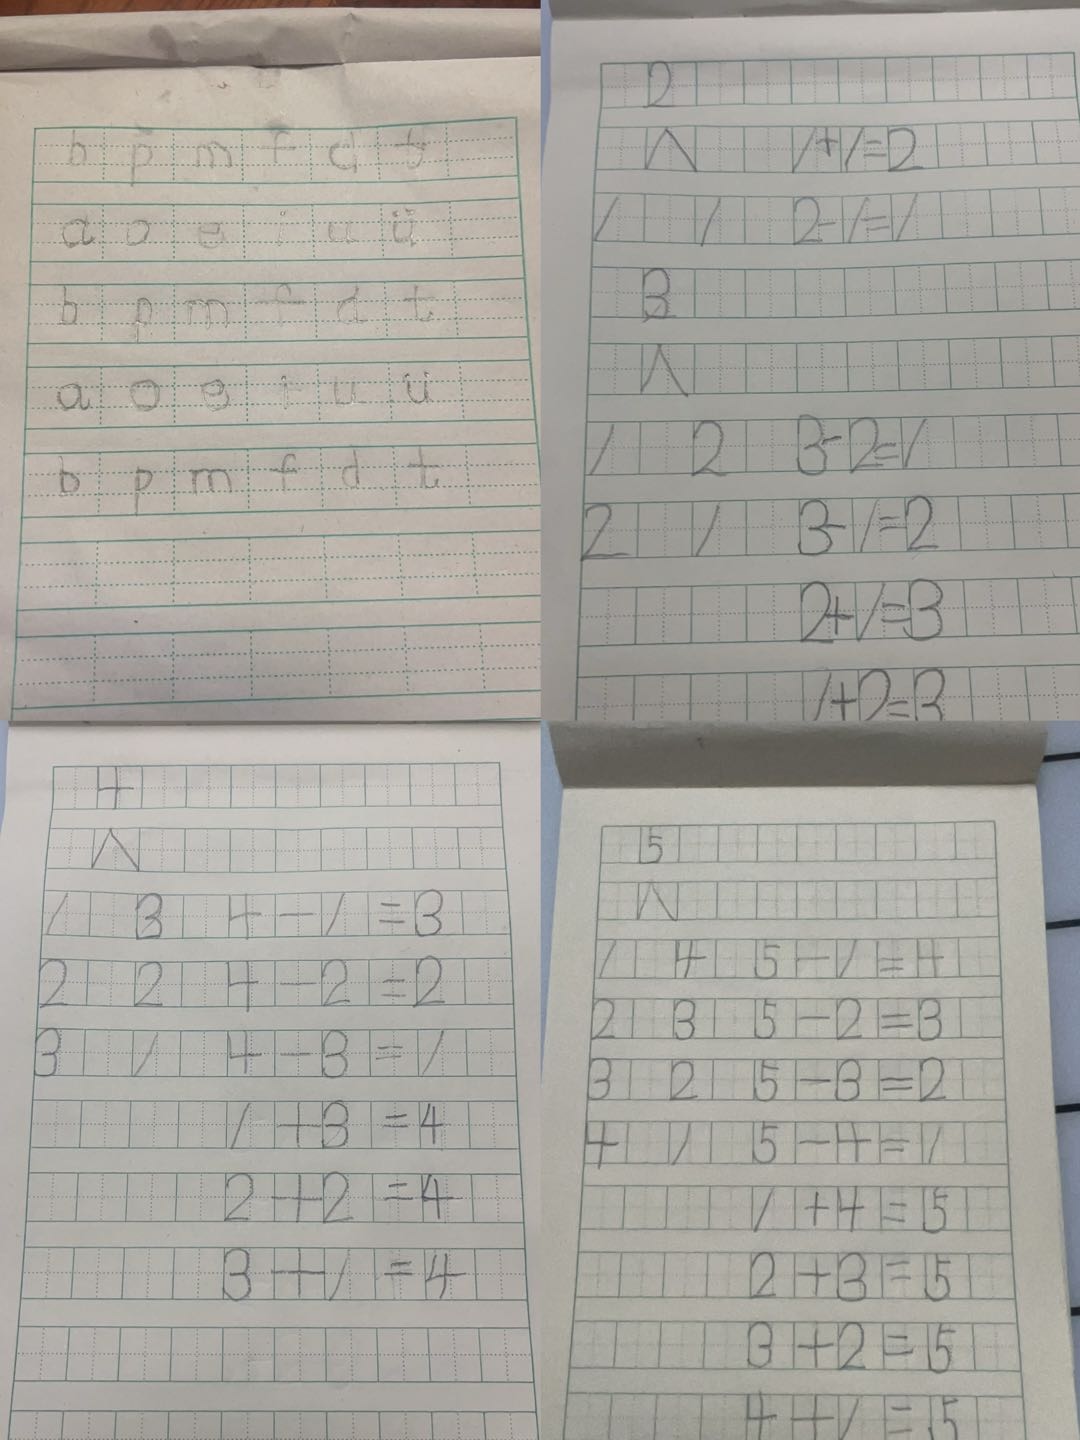 b p m f d t
a o e i u ü
b p m f d t
a o e i u ü
b p m f d t
2
1+1=2
1 1 2-1=1
3
1 2 3-2=1
2 1 3-1=2
2+1=3
1+2=3
4
1 3 4-1=3
2 2 4-2=2
3 1 4-3=1
1+3=4
2+2=4
3+1=4
5
1 4 5-1=4
2 3 5-2=3
3 2 5-3=2
4 1 5-4=1
1+4=5
2+3=5
3+2=5
4+1=5